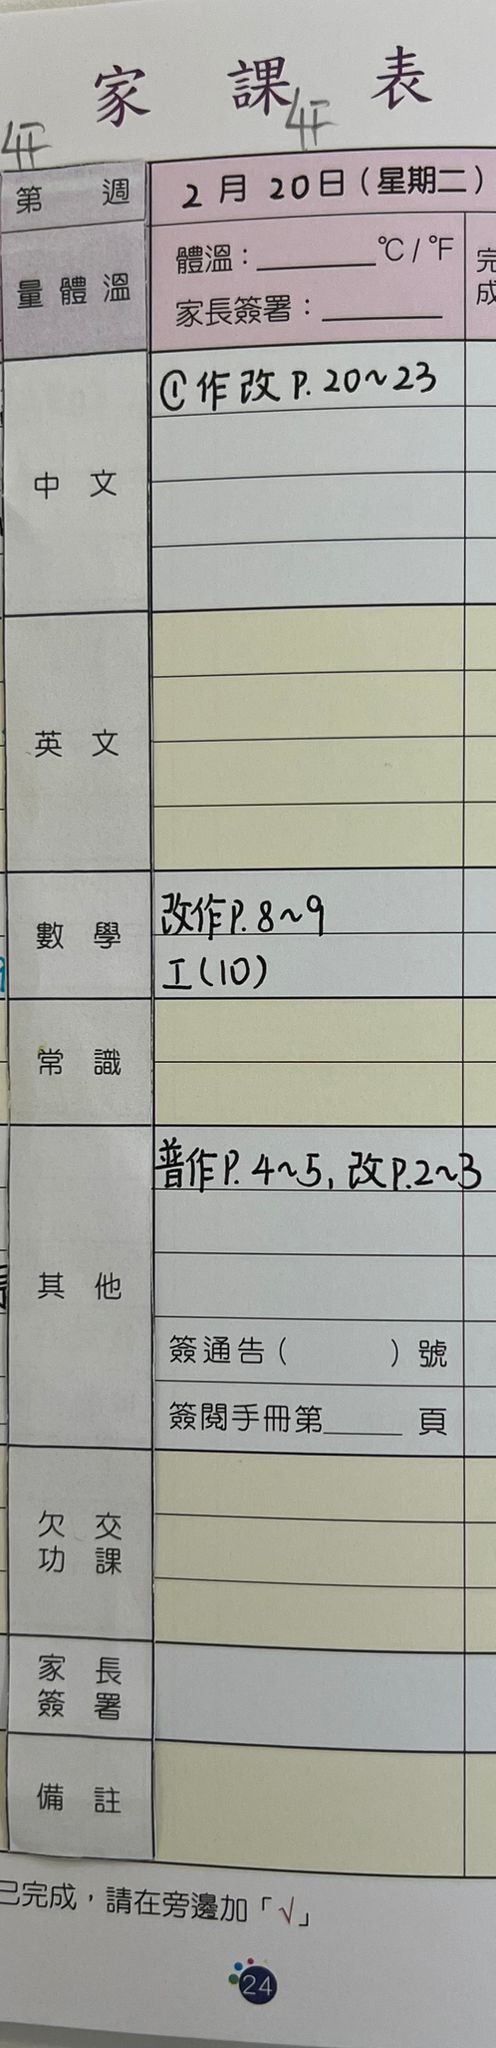 家課表
4F 4F
第 週 2月20日(星期二)
量體溫 體溫:________℃/℉ 完成
家長簽署:________
中文 ①作改 P. 20~23
英文
數學 改作P. 8~9
工(10)
常識
其他 普作P. 4~5, 改P.2~3
簽通告( )號
簽閱手冊第_____頁
欠交功課
家長簽署
備註
已完成,請在旁邊加「√」
24